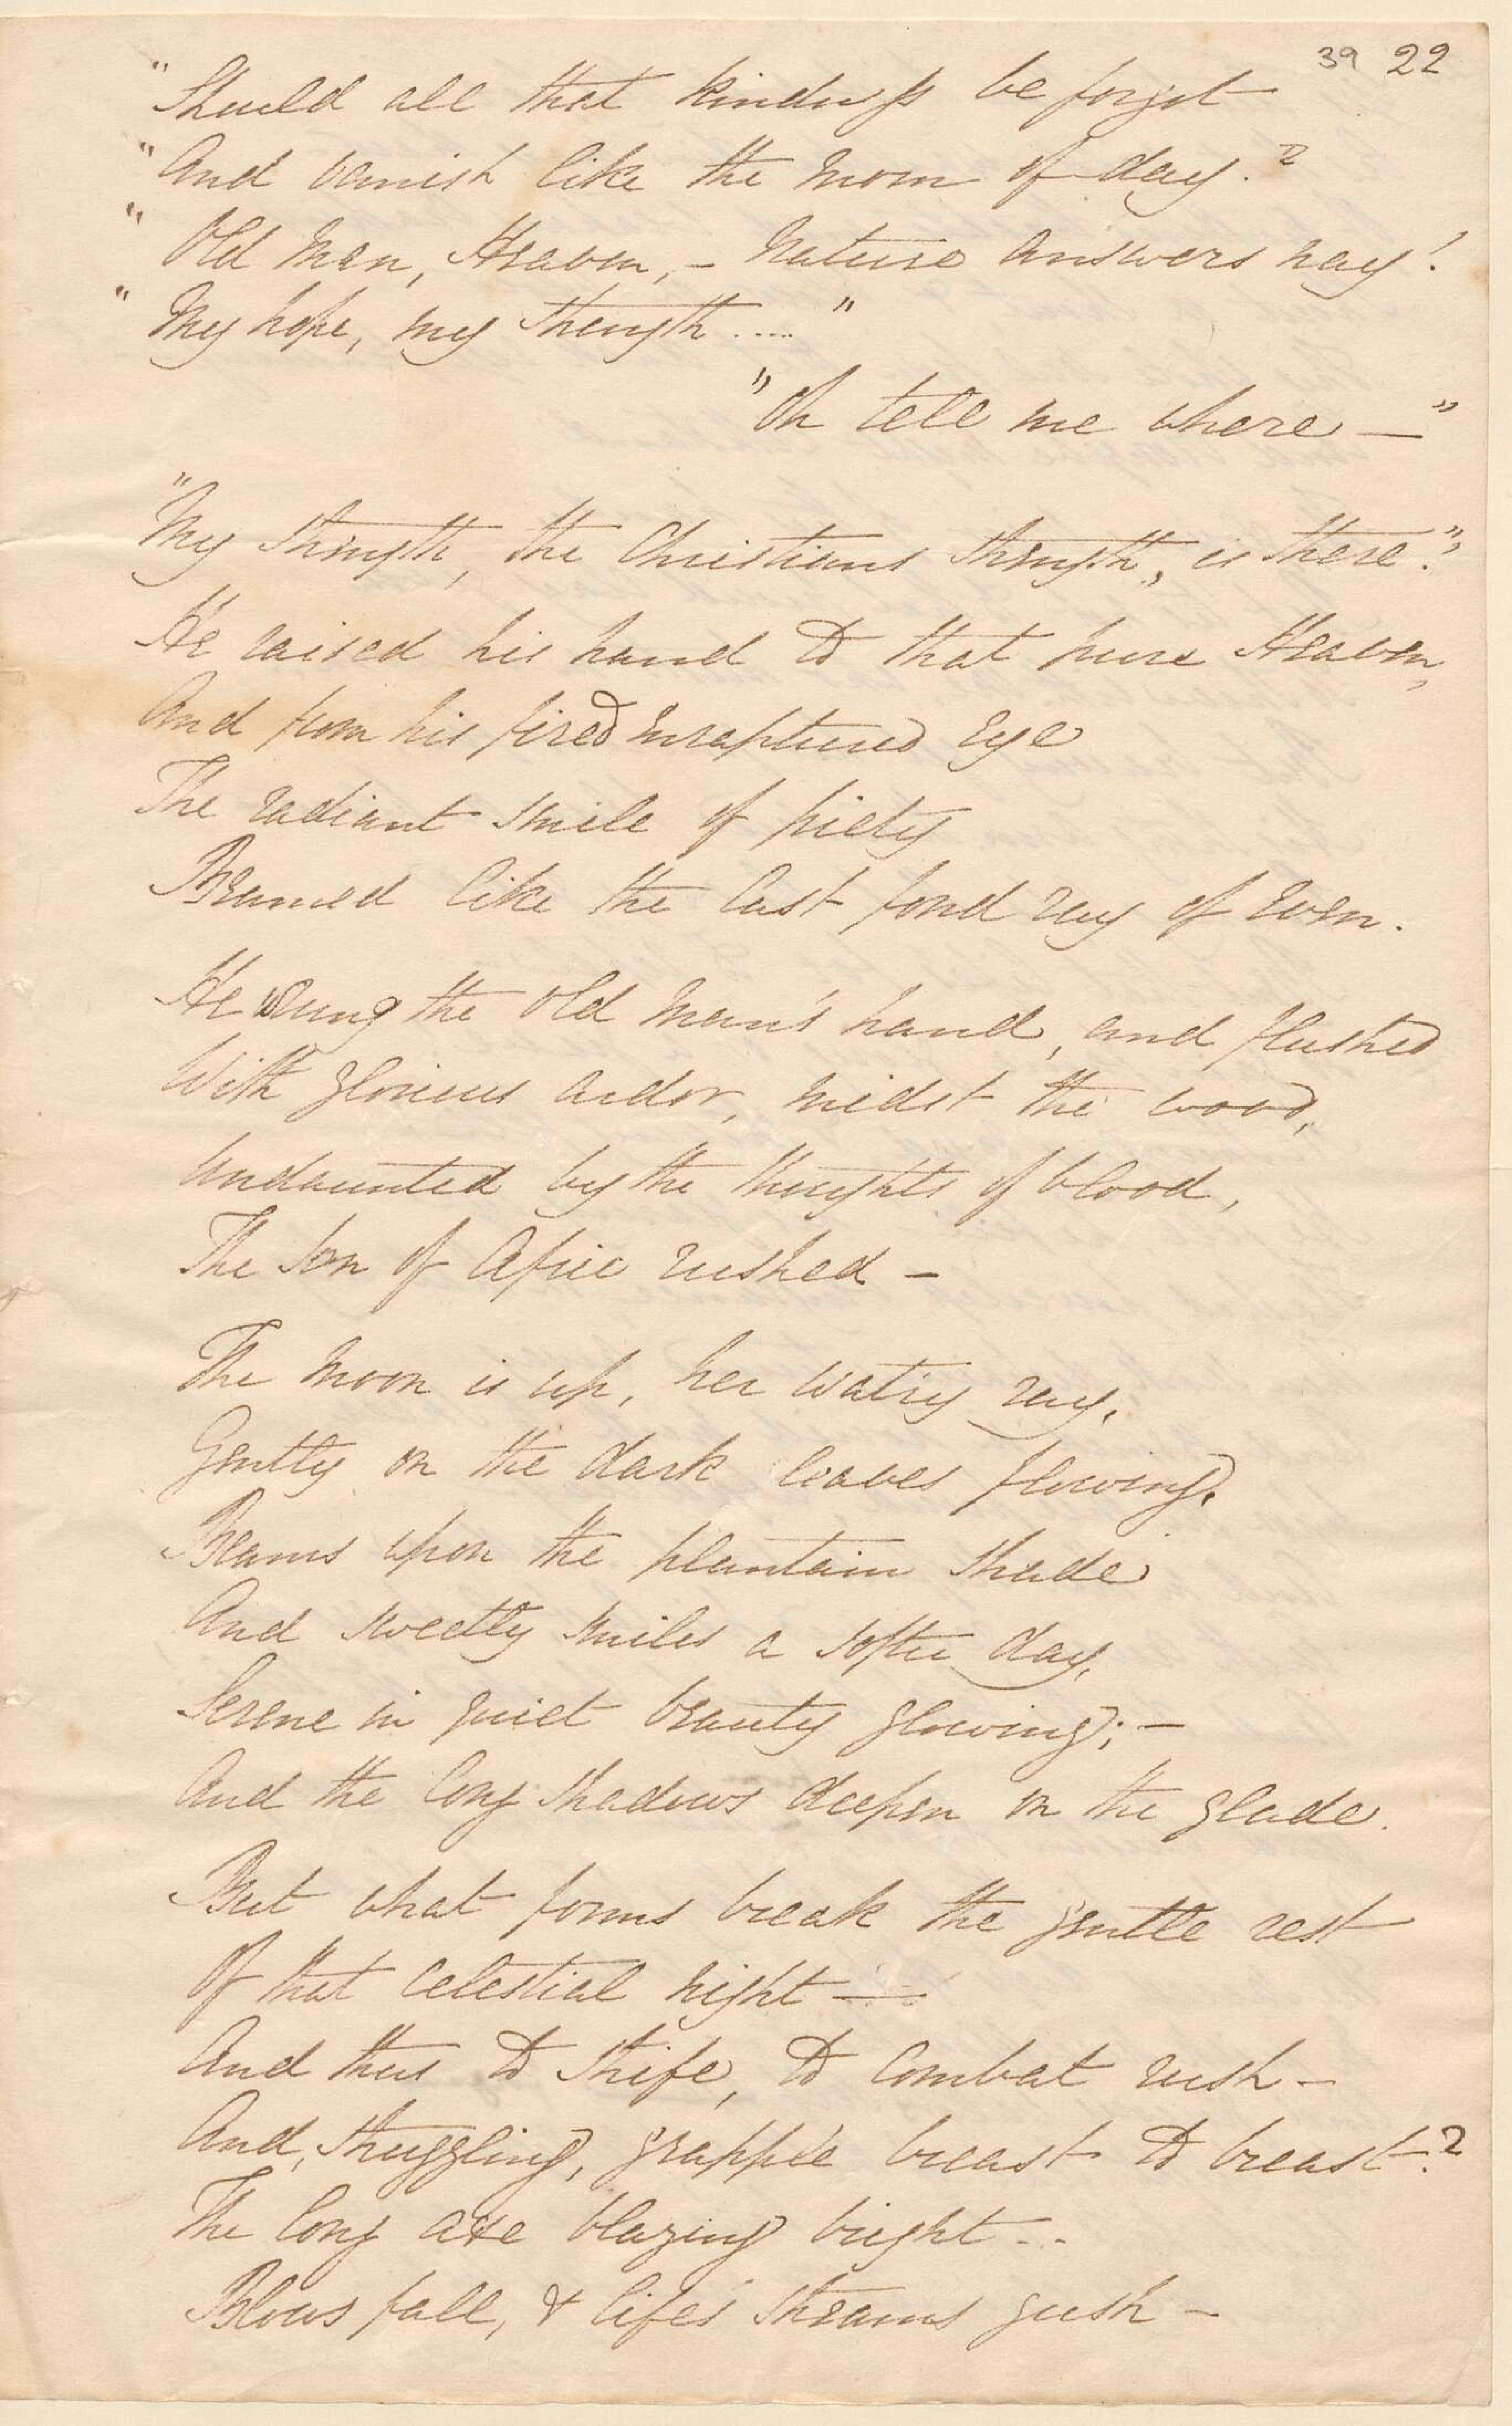 39 22
"Should all that kindness be forgot
"And vanish like the morn of day?
"Old man, Heaven, – Nature answers nay!
"My hope, my strength ...."
"Oh tell me where —"
"My strength, the Christians strength, is there."
He raised his hand to that pure Heaven,
And from his fired enraptured eye
The radiant smile of piety
Beamed like the last fond ray of even.
He wrung the old man's hand, and flushed
With glorious ardor, midst the wood,
Undaunted by the thoughts of blood,
The son of Afric rushed –
The moon is up, her watry ray,
Gently on the dark leaves flowing,
Beams upon the plantain shade
And sweetly smiles a softer day,
Serene in quiet beauty glowing; –
And the long shadows deepen on the glade.
But what forms break the gentle rest
Of that celestial night —
And thus to strife, to combat rush –
And, struggling, grapple breast to breast?
The long axe blazing bright ..
Blows fall, & life's streams gush –